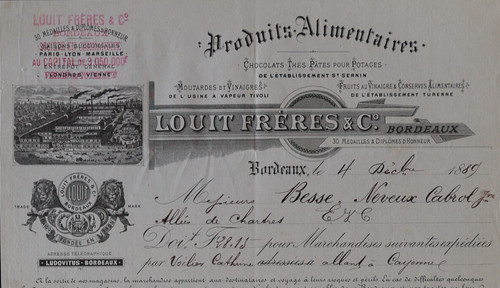 LOUIT FRÈRES & Cº
30 MÉDAILLES & DIPLÔMES D'HONNEUR
MAISONS SUCCURSALES
PARIS-LYON-MARSEILLE
AU CAPITAL DE
ENTREPOT GÉNÉRAL
LONDRES, VIENNE
Produits Alimentaires.
CHOCOLATS THÉS PÂTES POUR POTAGES
DE L'ÉTABLISSEMENT ST SERNIN
MOUTARDES ET VINAIGRES
DE L'USINE A VAPEUR TIVOLI
FRUITS AU VINAIGRE & CONSERVES ALIMENTAIRES
DE L'ÉTABLISSEMENT TURENNE
LOUIT FRÈRES & Cº
BORDEAUX
30 MÉDAILLES & DIPLÔMES D'HONNEUR
Bordeaux, le 4 Décbre 1889
Messieurs Besse, Neveux Cabrol Jne
Allées de Chartres E/V
Doit F. pour Marchandises suivantes expédiées
par Voilier Catherine adressées allant à Cayenne
LOUIT FRÈRES & Cº
BORDEAUX
FONDÉE EN
TRADE MARK
ADRESSE TÉLÉGRAPHIQUE
LUDOVITUS-BORDEAUX
A la sortie de nos magasins, la marchandise appartient aux destinataires et voyage à leurs risques et périls. En cas de difficultés quelconques